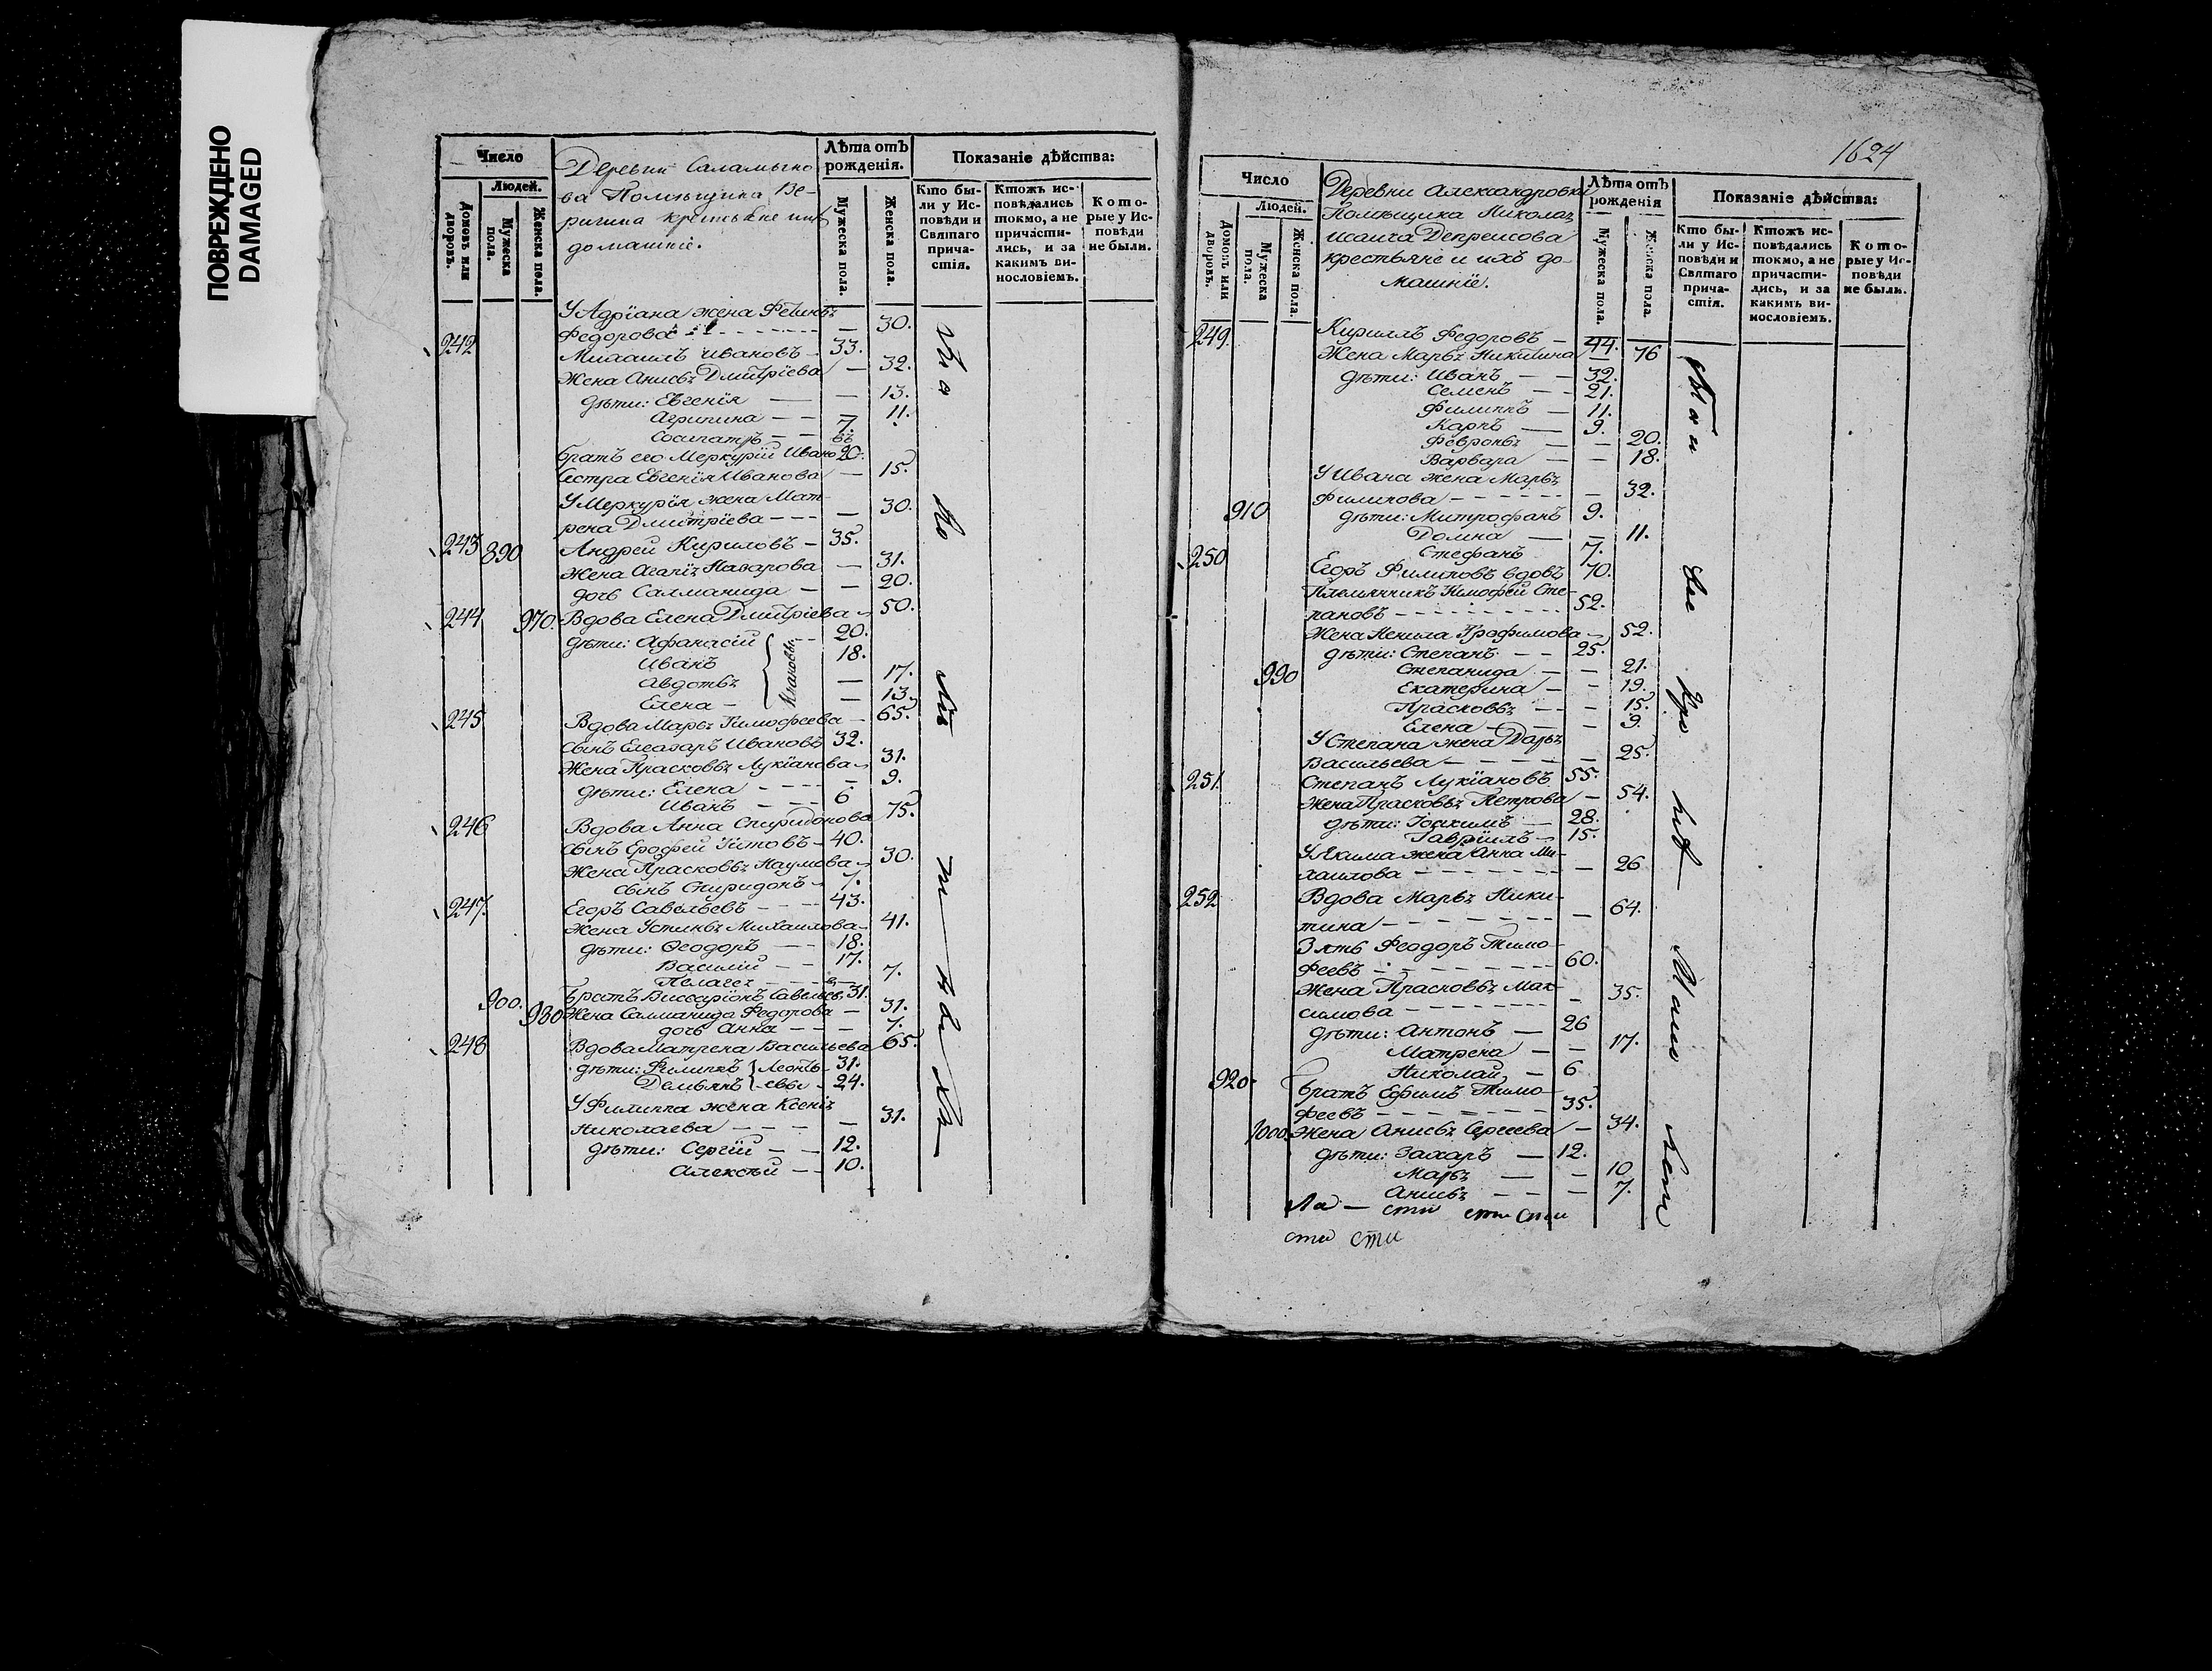 ПОВРЕЖДЕНО
DAMAGED
Число
Людей.
Домовъ или дворовъ.
Мужеска пола.
Женска пола.
Деревни Саламыко
ва Помѣщика Ве-
ригина
домашніе.
Лѣта отъ рожденія.
Мужеска пола.
Женска пола.
Показаніе дѣйства:
Кто бы-
ли у Ис-
повѣди и
Святаго
прича-
стія.
Ктожъ ис-
повѣдались
токмо, а не
причасти-
лись, и за
какимъ ви-
нословіемъ.
Кото-
рые у Ис-
повѣди
не были.
У Адріана жена
Федорова — 30.
242 Михаилъ Ивановъ — 33.
Жена Анисья Дмитріева — 32.
дѣти: Евгенія — 13.
Агрипина — 11.
Сосипатръ — 7.
братъ его Меркурій Ивано 20.
Сестра Евгенія Иванова — 15.
У Меркурія жена Мат-
рена Дмитріева — 30.
243 890 Андрей Кириловъ — 35.
Жена Агапія Назарова — 31.
дочь Саломанида — 20.
244 970. Вдова Елена Дмитріева 50.
дѣти: Афанасій 20.
Иванъ 18.
Авдотья — 17.
Елена — 13.
245 Вдова Марья Тимофеева — 65.
сынъ Елеазаръ Ивановъ 32.
Жена Прасковья Лукіанова 31.
дѣти: Елена — 9.
Иванъ — 6
246 Вдова Анна Спиридонова 75.
сынъ Ерофей Титовъ 40.
Жена Прасковья Наумова 30.
сынъ Спиридонъ 7.
247. Егоръ Савельевъ — 43.
Жена Устинья Михаилова 41.
дѣти: Ѳеодоръ — 18.
Василій — 17.
Пелагея — 7.
900. братъ Виссаріонъ Савельев. 31.
980 Жена Саломанида Федорова — 31.
дочь Анна — 7.
248 Вдова Матрена Васильева 65.
дѣти: Филиппъ Леонть- 31.
Демьянъ евы 24.
У Филиппа жена Ксенія
Николаева — 31.
дѣти: Сергій — 12.
Алексѣй — 10.
1624
Число
Людей.
Домовъ или дворовъ.
Мужеска пола.
Женска пола.
Деревни Александровки
Помѣщика Николая
Исаича Депреисова
крестьяне и ихъ до-
машніе.
Лѣта отъ рожденія
Мужеска пола.
Женска пола.
Показаніе дѣйства:
Кто бы-
ли у Ис-
повѣди и
Святаго
прича-
стія.
Ктожъ ис-
повѣдались
токмо, а не
причасти-
лись, и за
какимъ ви-
нословіемъ.
Кото-
рые у Ис-
повѣди
не были.
249. Кирилъ Федоровъ — 44.
Жена Марья Никитина — 76
дѣти: Иванъ — 32.
Семенъ — 21.
Филиппъ — 11.
Карпъ — 9.
Февронья — 20.
Варвара — 18.
У Ивана жена Марья
Филипова — 32.
910 дѣти: Митрофанъ 9.
Домна — 11.
Стефанъ 7.
250 Егоръ Филиповъ вдовъ 70.
Племянникъ Тимофей Сте-
пановъ — 52.
Жена Ненила Трофимова — 52.
дѣти: Степанъ — 25.
990 Степанида — 21.
Екатерина — 19.
Прасковья — 15.
Елена — 9.
У Степана жена Дарья
Васильева — 25.
251. Степанъ Лукіановъ 55.
Жена Прасковья Петрова — 54.
дѣти: Іоакимъ — 28.
Гавріилъ — 15.
У Якима жена Анна Ми-
хаилова — 26
252 Вдова Марья Ники-
тина — 64.
Зять Феодоръ Тимо-
феевъ — 60.
Жена Прасковья Мак-
симова — 35.
дѣти: Антонъ — 26
Матрена — 17.
Николай — 6
920. братъ Ефимъ Тимо-
феевъ — 35.
1000. Жена Анисья Сергеева — 34.
дѣти: Захаръ — 12.
Марья — 10
Анисья — 7.
сти сти сти
сти сти